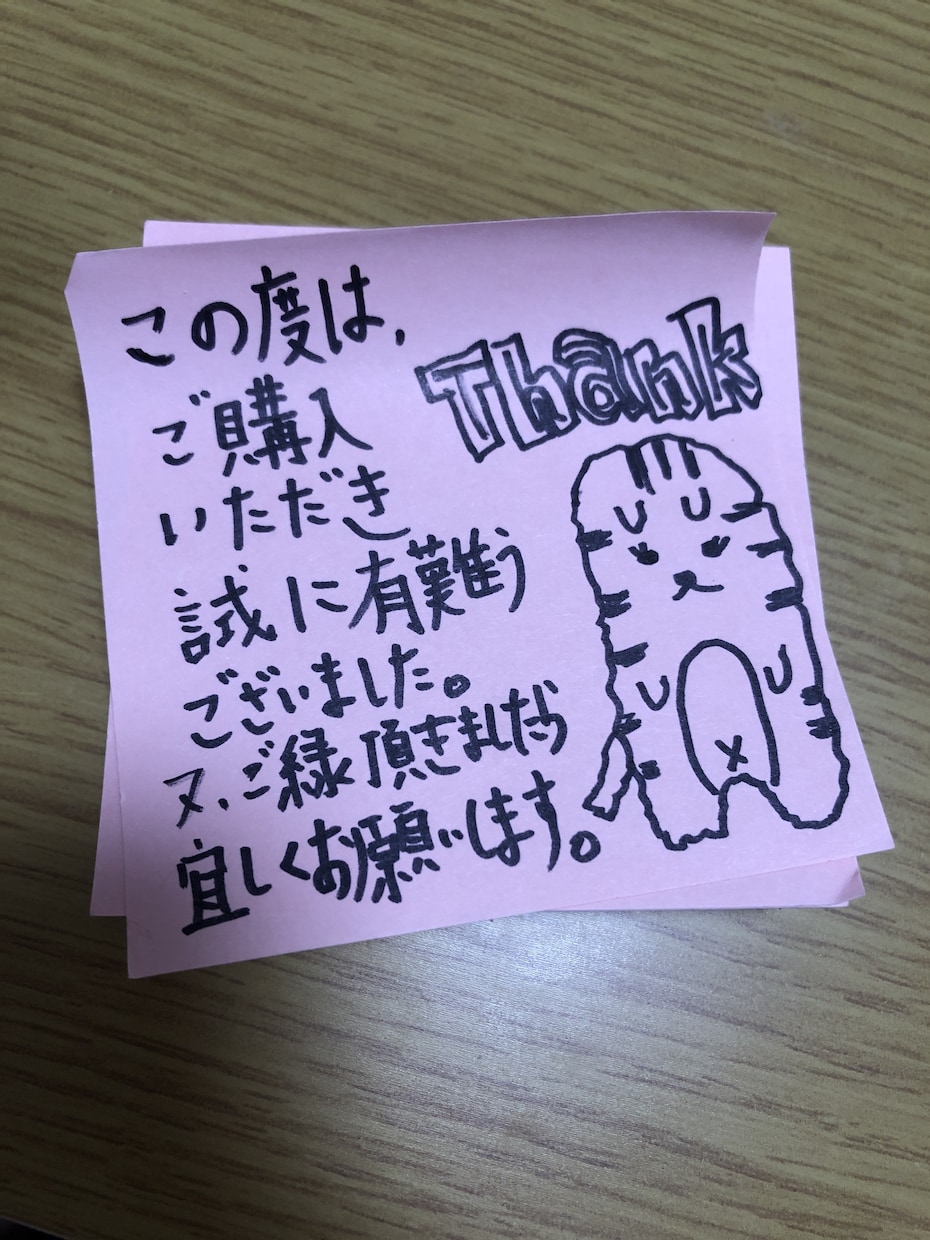 この度は、
Thank
ご購入
いただき
試に有難う
ございました。
又、ご緑頂きましたら
宜しくお願いします。